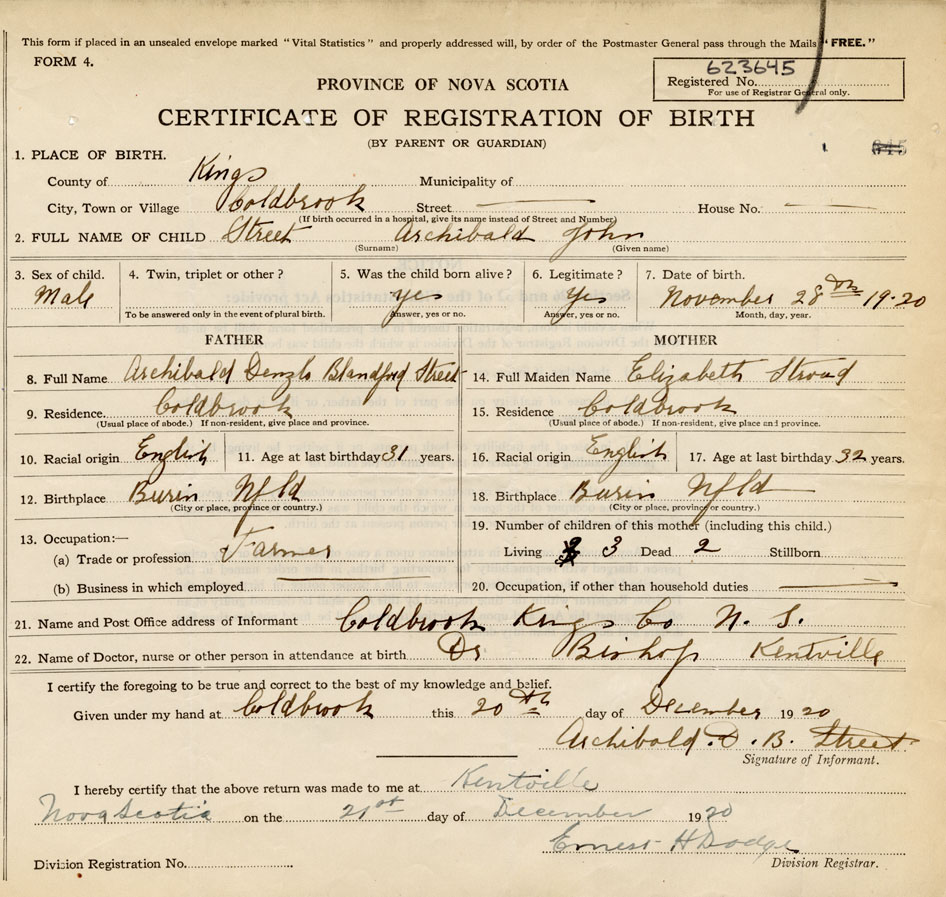 This form if placed in an unsealed envelope marked "Vital Statistics" and properly addressed will, by order of the Postmaster General pass through the Mails "FREE."
FORM 4.
623645
Registered No.
For use of Registrar General only.
PROVINCE OF NOVA SCOTIA
CERTIFICATE OF REGISTRATION OF BIRTH
(BY PARENT OR GUARDIAN)
645
1. PLACE OF BIRTH.
County of Kings Municipality of
City, Town or Village Coldbrook Street — House No. —
(If birth occurred in a hospital, give its name instead of Street and Number)
2. FULL NAME OF CHILD Street Archibald John
(Surname) (Given name)
3. Sex of child. 4. Twin, triplet or other? 5. Was the child born alive? 6. Legitimate? 7. Date of birth.
Male yes Yes November 28th 1920
To be answered only in the event of plural birth. Answer, yes or no. Answer, yes or no. Month, day, year.
FATHER MOTHER
8. Full Name Archibald Denzlo Blandford Street 14. Full Maiden Name Elizabeth Stroud
9. Residence. Coldbrook 15. Residence Coldbrook
(Usual place of abode.) If non-resident, give place and province. (Usual place of abode.) If non-resident, give place and province.
10. Racial origin English 11. Age at last birthday 31 years. 16. Racial origin English 17. Age at last birthday. 32 years.
12. Birthplace Burin Nfld 18. Birthplace Burin Nfld
(City or place, province or country.) (City or place, province or country.)
13. Occupation:— 19. Number of children of this mother (including this child.)
(a) Trade or profession Farmer Living 3 Dead 2 Stillborn
(b) Business in which employed — 20. Occupation, if other than household duties —
21. Name and Post Office address of Informant Coldbrook Kings Co N. S.
22. Name of Doctor, nurse or other person in attendance at birth Dr Bishop Kentville
I certify the foregoing to be true and correct to the best of my knowledge and belief.
Given under my hand at Coldbrook this 20th day of December 1920
Archibald. D. B. Street
Signature of Informant.
I hereby certify that the above return was made to me at Kentville
Nova Scotia on the 21st day of December 1920
Ernest H Dodge
Division Registration No. Division Registrar.